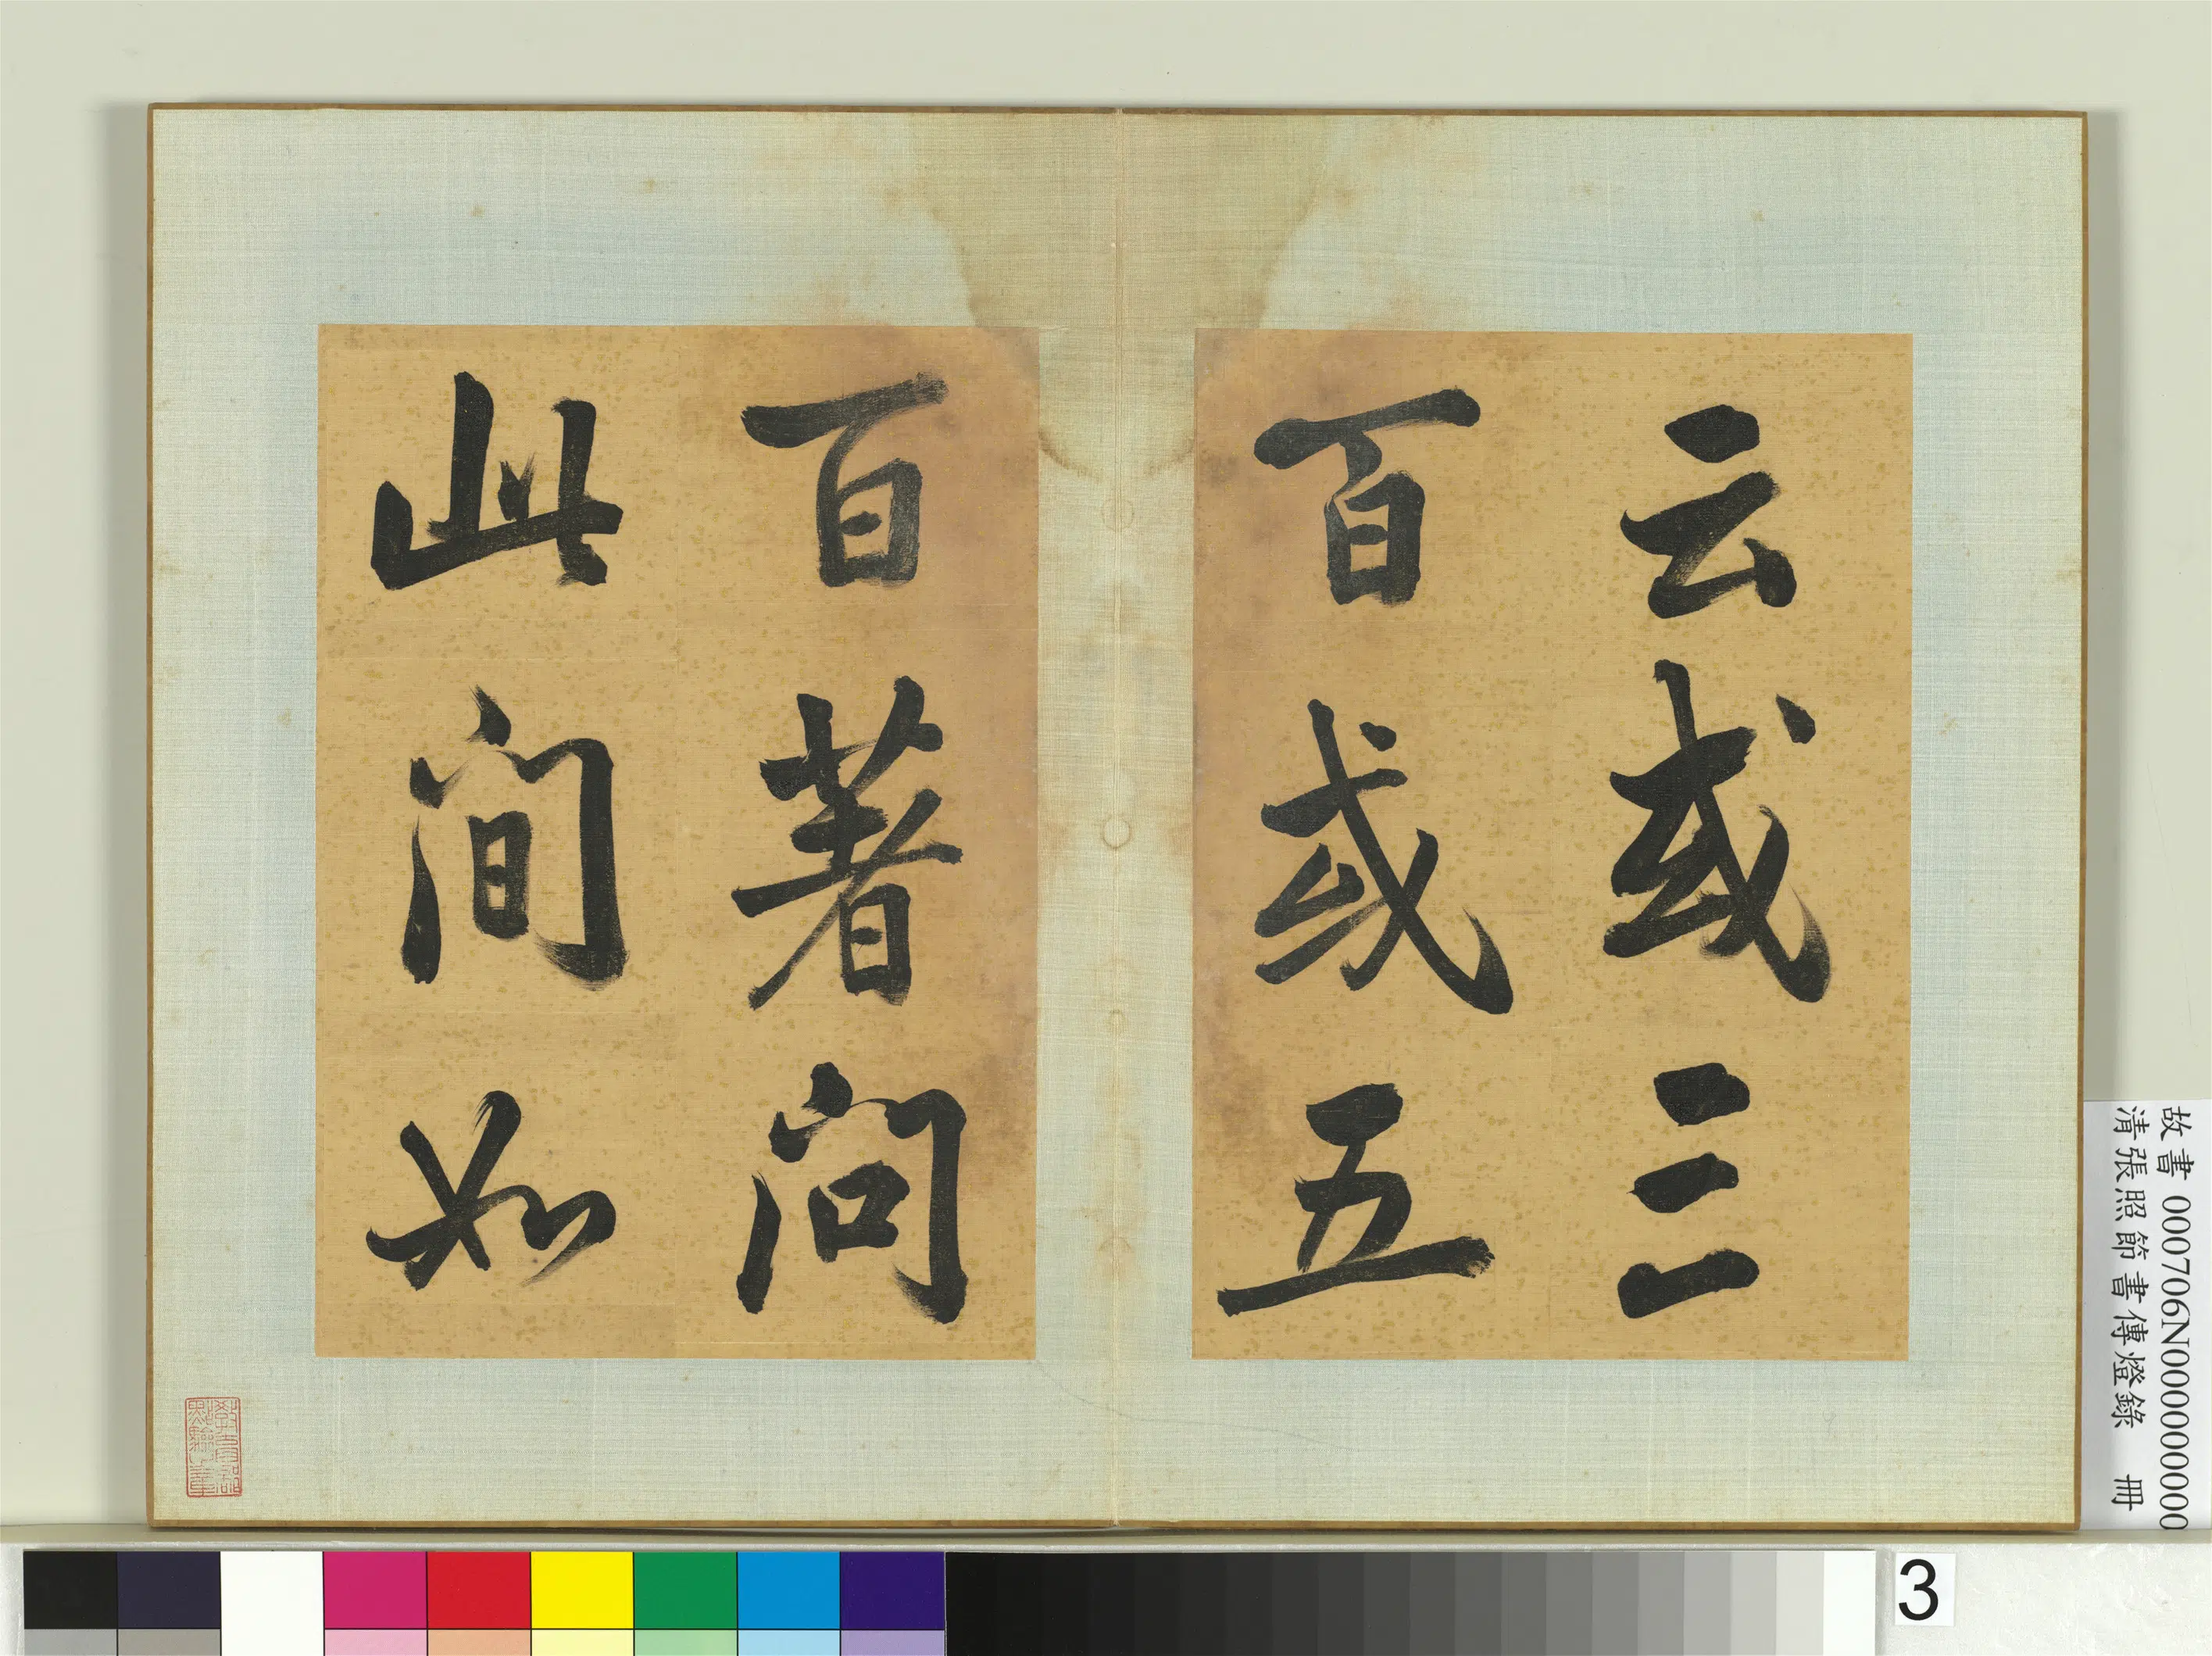 云或三
百或五
百著问
此间如
故書 000706N000000000
清張照節書傳燈錄 冊
3